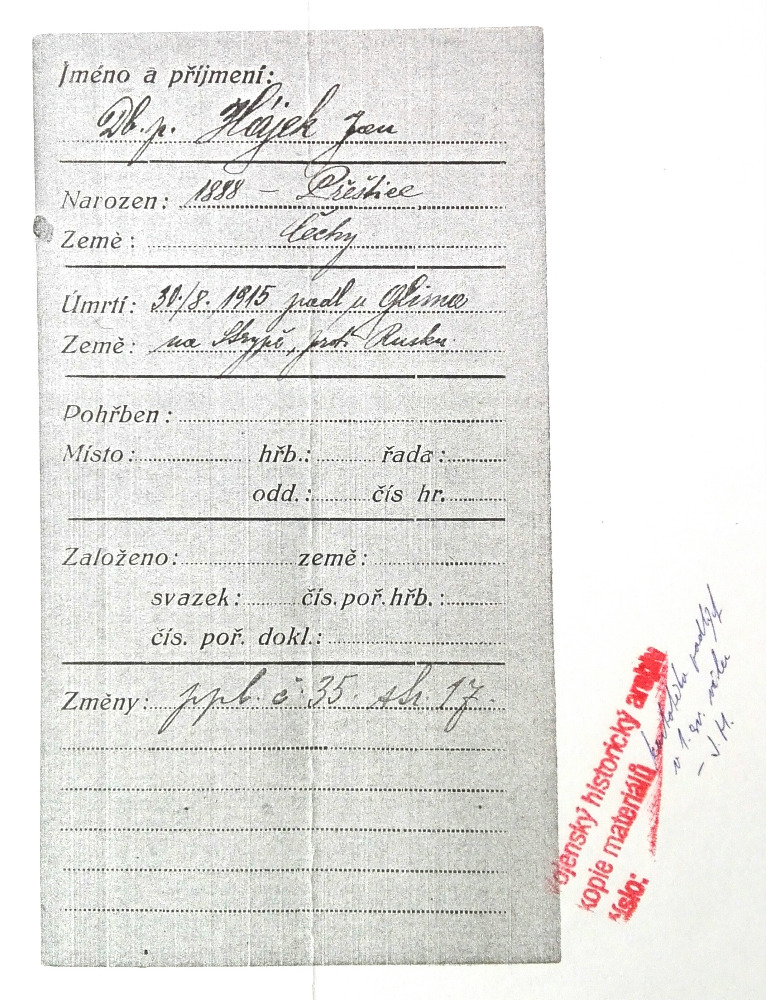 Jméno a příjmení:
Db. p. Hájek Jan
Narozen: 1888 – Přeštice
Země: Čechy
Úmrtí: 30./8. 1915 padl u Glinna
Země: na Strypě, proti Rusku.
Pohřben:
Místo: hřb.: řada:
odd.: čís hr.
Založeno: země:
svazek: čís. poř. hřb.:
čís. poř. dokl.:
Změny: ppl. č. 35. str. 17.
Vojenský historický archiv
kopie materiálů
číslo:
kartotéka padlých
v 1. sv. válce
– J. H.